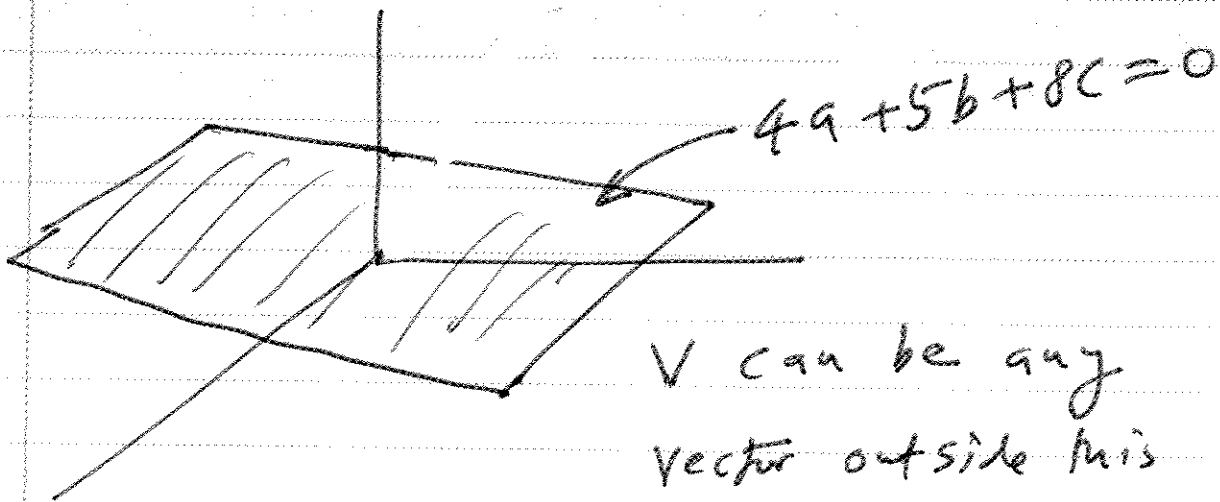 4a+5b+8c=0
V can be any
vector outside this